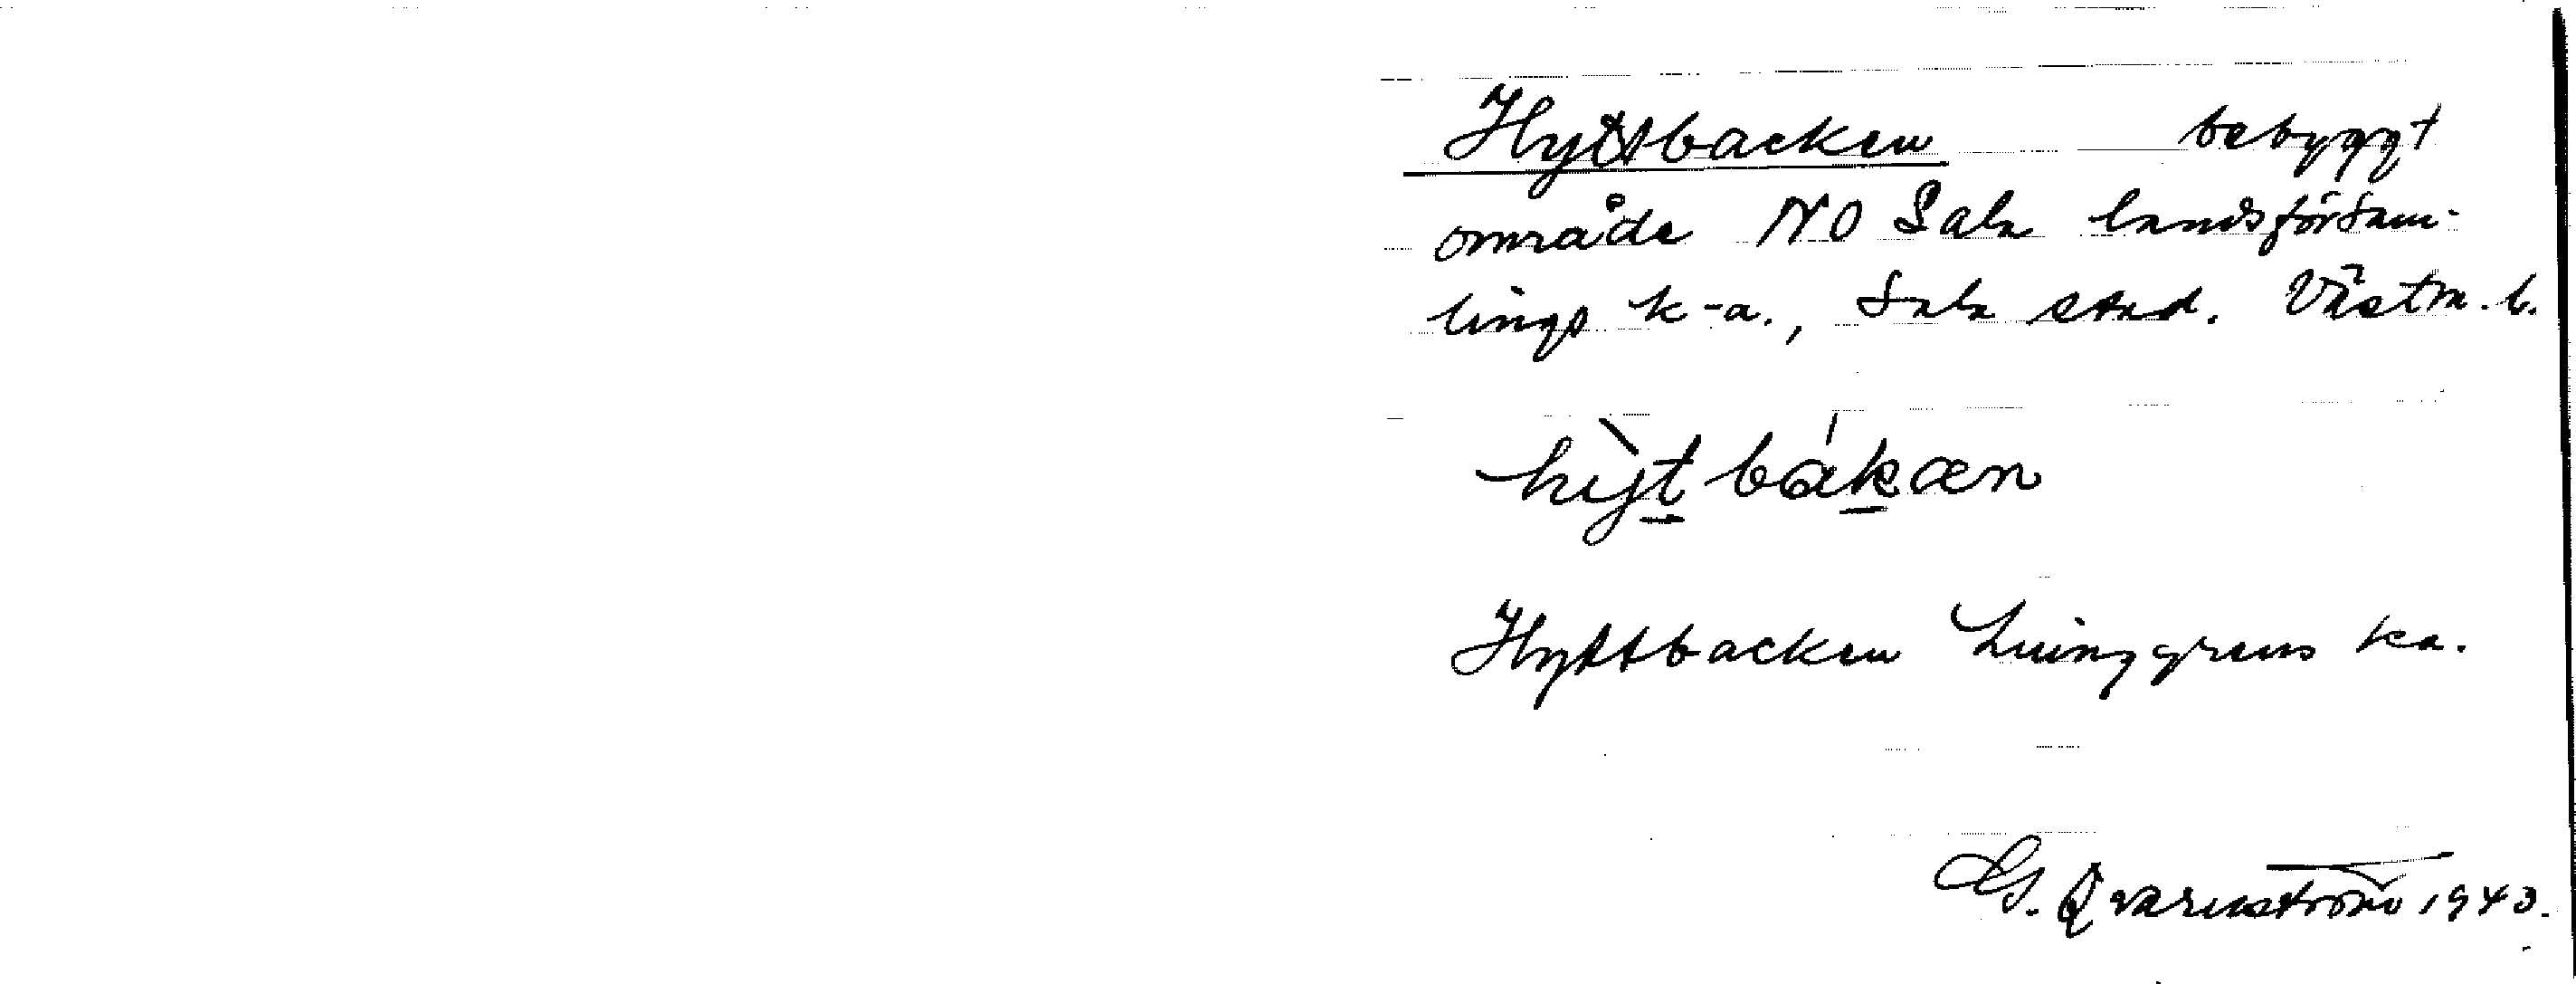 Hyttbacken bebyggt
område NO Sala landsförsam-
lings k-a., Sala stad. Västm. l.
hỳtbákæn
Hyttbacken Ljunggrens ka.
G. Qvarnström 1943.